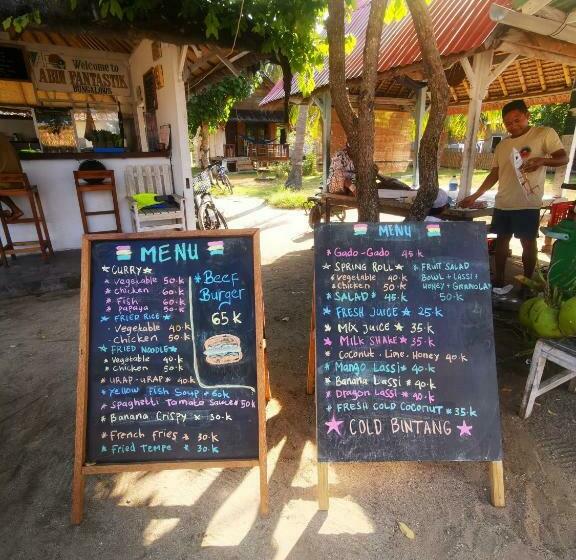 Welcome to
ABIN FANTASTIK
BUNGALOWS
MENU
★ CURRY ★
* Vegetable 50.k
* chicken 60.k
* Fish 60.k
* papaya 50.k
* FRIED RICE *
Vegetable 40.k
chicken 50.k
* FRIED NOODLE ★
* Vegetable 40.k
* Chicken 50.k
* URAP-URAP * 40.k
* Yellow Fish Soup * 60k
* Spaghetti Tomato Sauce * 50.k
* Banana Crispy * 30.k
* French Fries * 30.k
* Fried Tempe * 30.k
* Beef
Burger
65 K
MENU
* Gado-Gado 45 k
★ SPRING ROLL ★
* vegetable 40.k
* chicken 50.k
★ SALAD ★ 45 k
* FRUIT SALAD
BOWL + LASSI +
HONEY + GRANOLA
50.k
* FRESH JUICE ★ 25 k
* Mix Juice ★ 35.k
* MILK SHAKE ★ 35.k
* Coconut.Lime.Honey 40.k
* Mango Lassi * 40.k
* Banana Lassi * 40.k
* Dragon Lassi * 40.k
* FRESH COLD COCONUT * 35.k
★ COLD BINTANG ★